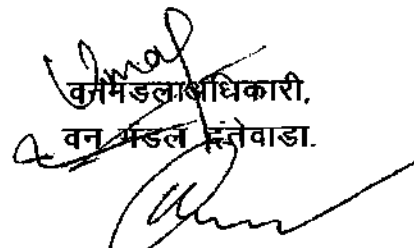 वनमंडलाधिकारी,
वन मंडल दंतेवाडा.